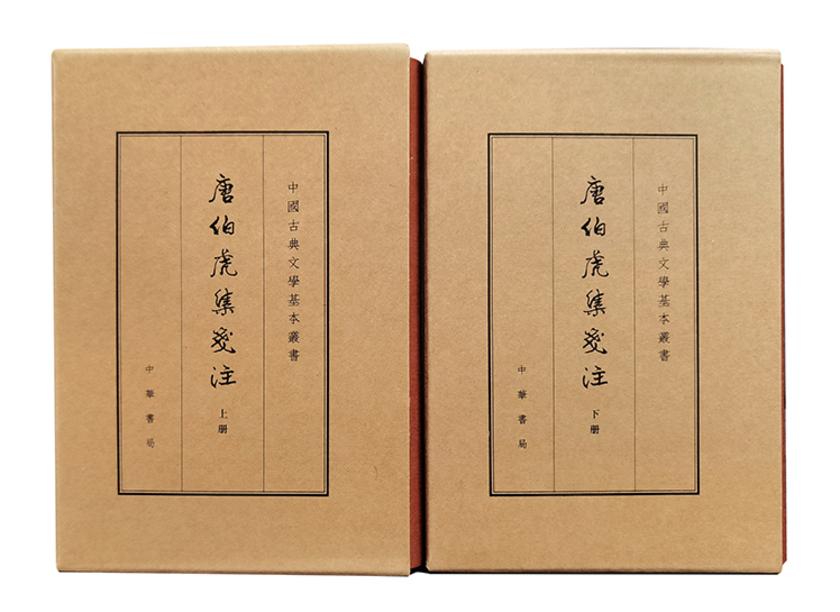 中國古典文學基本叢書
唐伯虎集箋注
上册
中華書局
中國古典文學基本叢書
唐伯虎集箋注
下册
中華書局